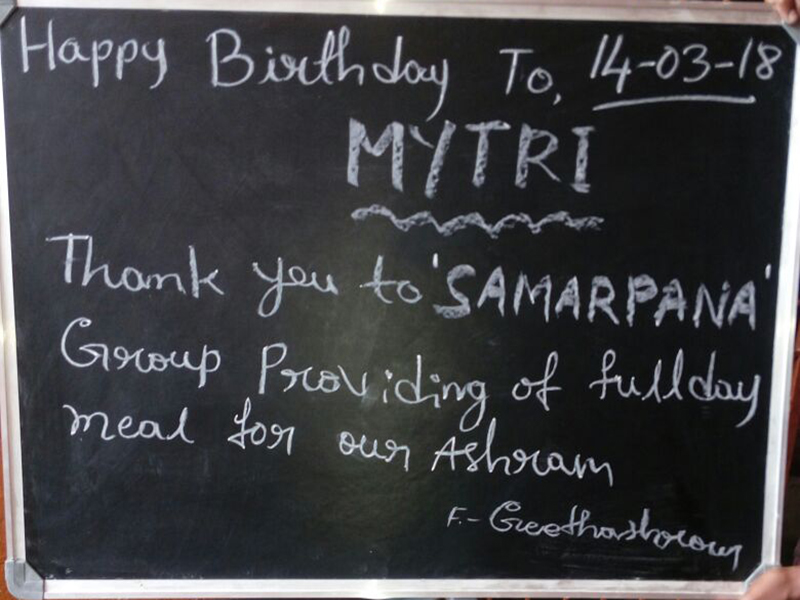 Happy Birthday To, 14-03-18
MYTRI
Thank you to 'SAMARPANA'
Group Providing of fullday
meal for our Ashram
F.- Geethashram